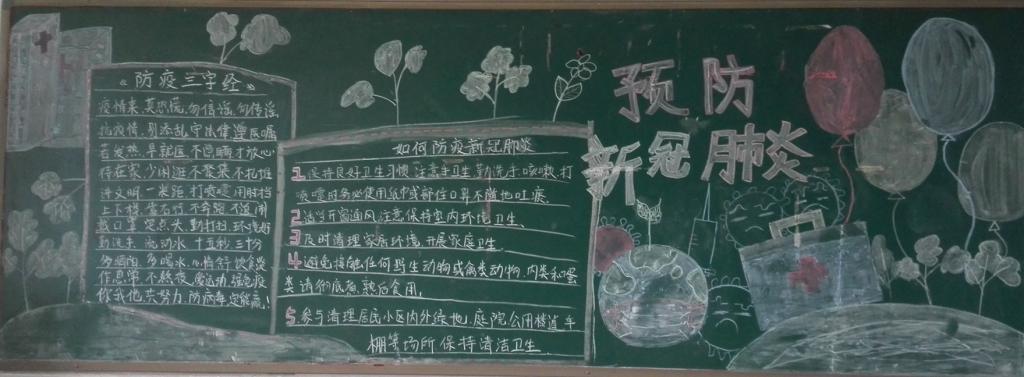 《防疫三字经》
疫情来,莫恐慌,勿信谣,勿传谣,
抗疫情,别添乱,守法律
若发热,早就医,不隐瞒,才放心
待在家,少闲逛,不聚众,不扎堆
讲文明,一米距,打喷嚏,用肘挡
上下楼,靠右行,不奔跑,不逗闹
戴口罩,定点大,勤打扫,环境好
勤洗手,流动水,十五秒,三十分
多喝水,心情舒
作息常,不熬夜,爱运动,强免疫
你我他,共努力,防病毒,定能赢!
如何防疫新冠肺炎
1.保持良好卫生习惯 注意手卫生 勤洗手,咳嗽,打
喷嚏时务必使用纸巾或部住口鼻 不随地吐痰.
2.适当开窗通风,注意保持室内环境卫生.
3.及时清理家居环境,开展家庭卫生.
4.避免接触任何野生动物或禽类动物,肉类和蛋
类请彻底煮熟后食用.
5.参与清理居民小区内外绿地,庭院,公用楼道,车
棚等场所保持清洁卫生.
预防
新冠肺炎